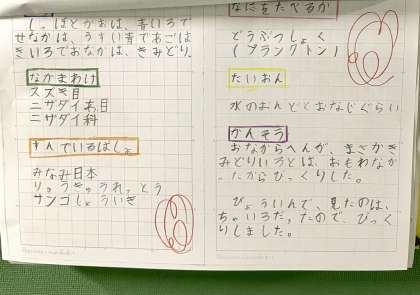 しっぽとかおは、青いろで
せなかは、うすい青であごは
きいろでおなかは、きみどり。
なかまわけ
スズキ目
ニザダイあ目
ニザダイ科
すんでいるばしょ
みなみ日本
りゅうきゅうれっとう
サンゴしょういき
なにをたべるか
どうぶつしょく
(プランクトン)
たいおん
水のおんどとおなじぐらい
かんそう
おながらへんが、まさかき
みどりいろとは、おもわなか
ったからびっくりした。
びょういんで、見たのは、
ちゃいろだったので、びっく
りしました。